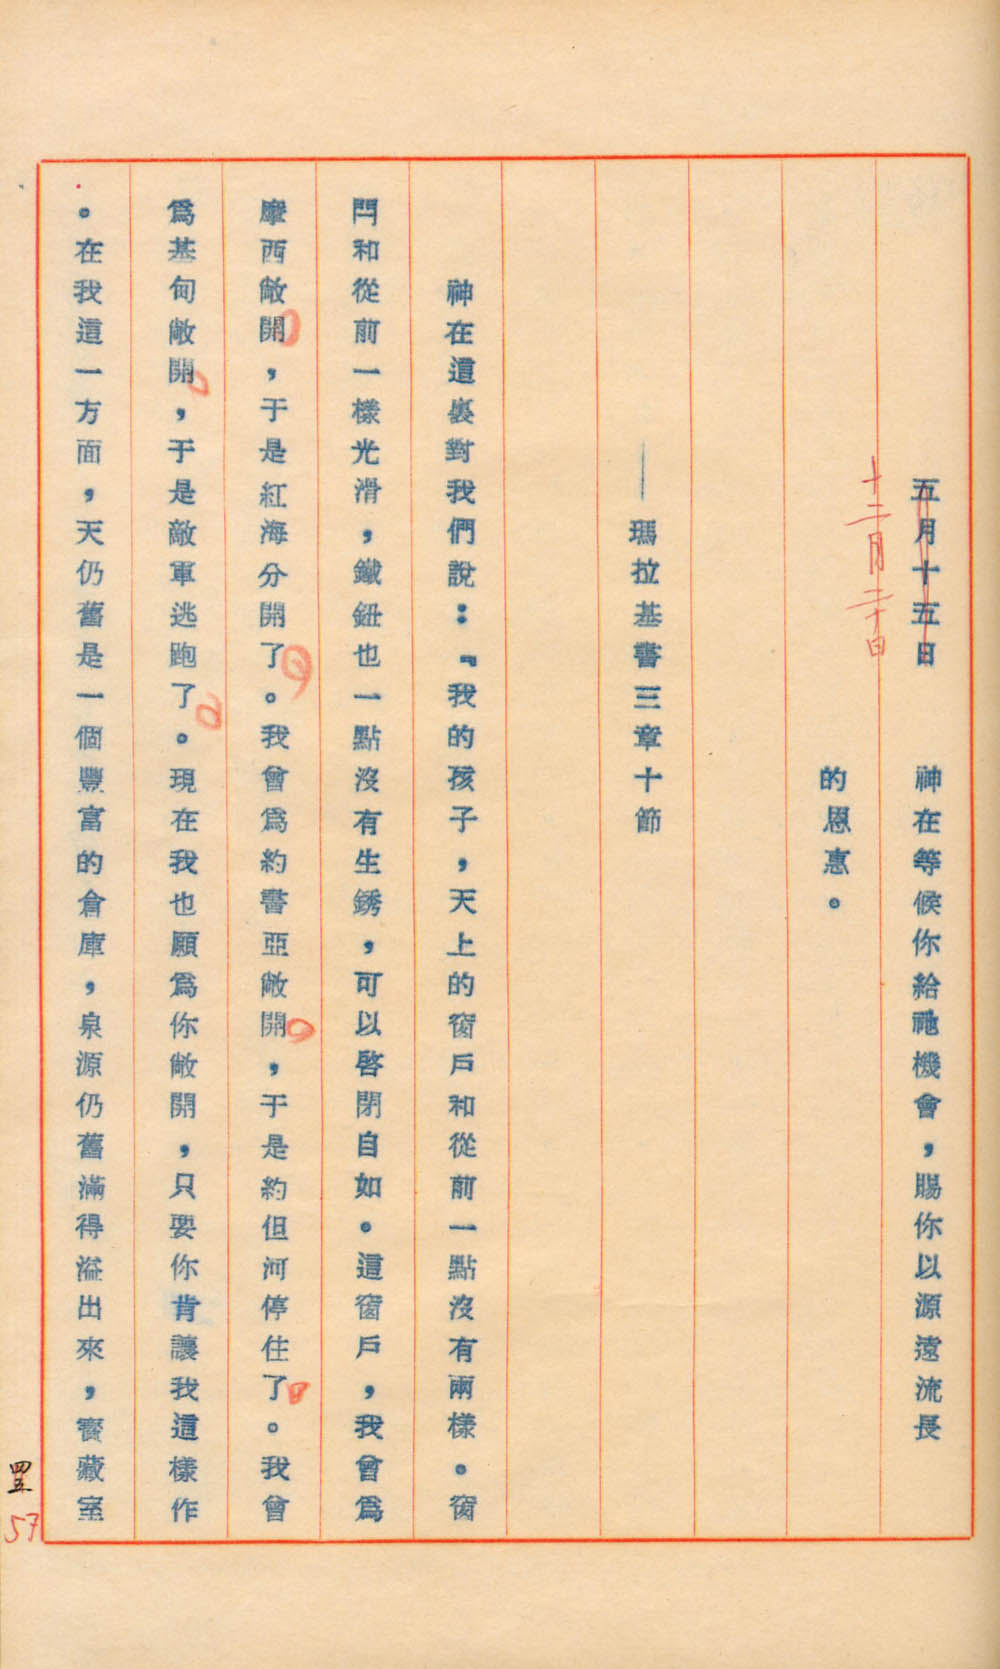 五月十五日　神在等候你給祂機會，賜你以源遠流長
十二月二十日
的恩惠。
——瑪拉基書三章十節
神在這裏對我們說：『我的孩子，天上的窗戶和從前一點沒有兩樣。窗
閂和從前一樣光滑，鐵鈕也一點沒有生銹，可以啓閉自如。這窗戶，我曾爲
摩西敞開，于是紅海分開了。我曾爲約書亞敞開，于是約但河停住了。我曾
爲基甸敞開，于是敵軍逃跑了。現在我也願爲你敞開，只要你肯讓我這樣作
。在我這一方面，天仍舊是一個豐富的倉庫，泉源仍舊滿得溢出來，寳藏室
57